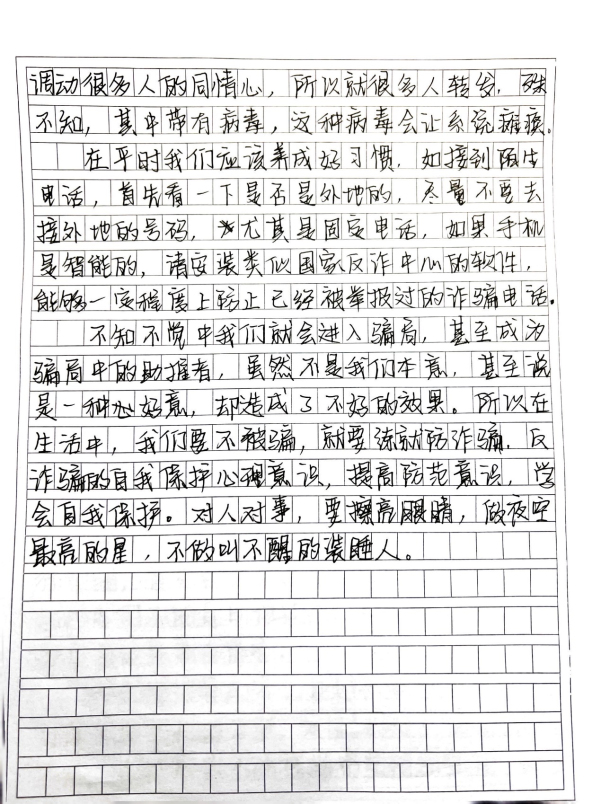 调动很多人的同情心，所以就很多人转发，殊
不知，其中带有病毒，这种病毒会让系统瘫痪。
在平时我们应该养成好习惯，如接到陌生
电话，首先看一下是否是外地的，尽量不要去
接外地的号码，尤其是固定电话，如果手机
是智能的，请安装类似国家反诈中心的软件，
能够一定程度上防止已经被举报过的诈骗电话。
不知不觉中我们就会进入骗局，甚至成为
骗局中的助推者，虽然不是我们本意，甚至说
是一种心好意，却造成了不好的效果。所以在
生活中，我们要不被骗，就要练就防诈骗，反
诈骗的自我保护心理意识，提高防范意识，学
会自我保护。对人对事，要擦亮眼睛，做夜空
最亮的星，不做叫不醒的装睡人。